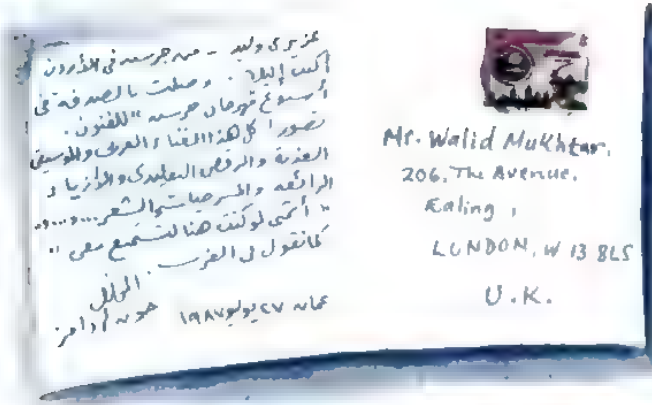 عزيزي وليد - من جرسه في الأردن
أكتب إليك. وصلت بالصدفة في
أسبوع مهرجان جرسه "للفنون.
تصور! كل هذا الغناء العربي والموسيقى
العذبة والرقص التقليدي والأزياء
الرائعه والمسرحيات والشعر...و...و..
"أتمنى لو كنت هنا لتستمتع معي"
كما نقول في الغرب. المخلص
عمان ٢٧ يوليو ١٩٨٧
Mr. Walid Mukhtar.
206, The Avenue.
Ealing,
LONDON, W13 8LS
U.K.